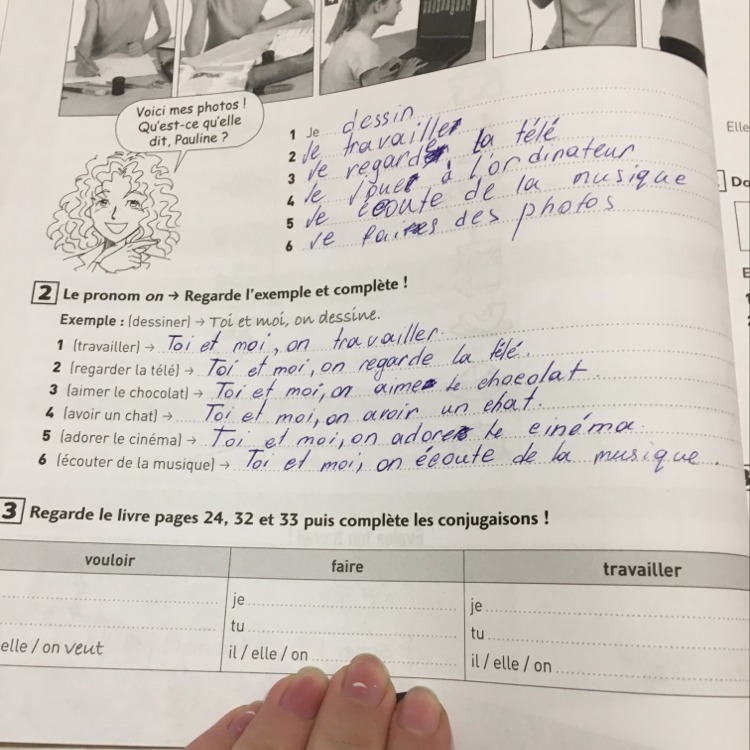 Voici mes photos !
Qu'est-ce qu'elle
dit, Pauline ?
1 Je dessin
2 Je travailler
3 Je regarder la télé
4 Je jouer à l'ordinateur
5 Je écoute de la musique
6 Je faires des photos
Elle
Do
E
2 Le pronom on → Regarde l'exemple et complète !
Exemple : (dessiner) → Toi et moi, on dessine.
1 (travailler) → Toi et moi, on travailler.
2 (regarder la télé) → Toi et moi, on regarde la télé.
3 (aimer le chocolat) → Toi et moi, on aime le chocolat.
4 (avoir un chat) → Toi et moi, on avoir un chat.
5 (adorer le cinéma) → Toi et moi, on adore le cinéma.
6 (écouter de la musique) → Toi et moi, on écoute de la musique.
3 Regarde le livre pages 24, 32 et 33 puis complète les conjugaisons !
vouloir faire travailler
je je
tu tu
elle / on veut il / elle / on il / elle / on